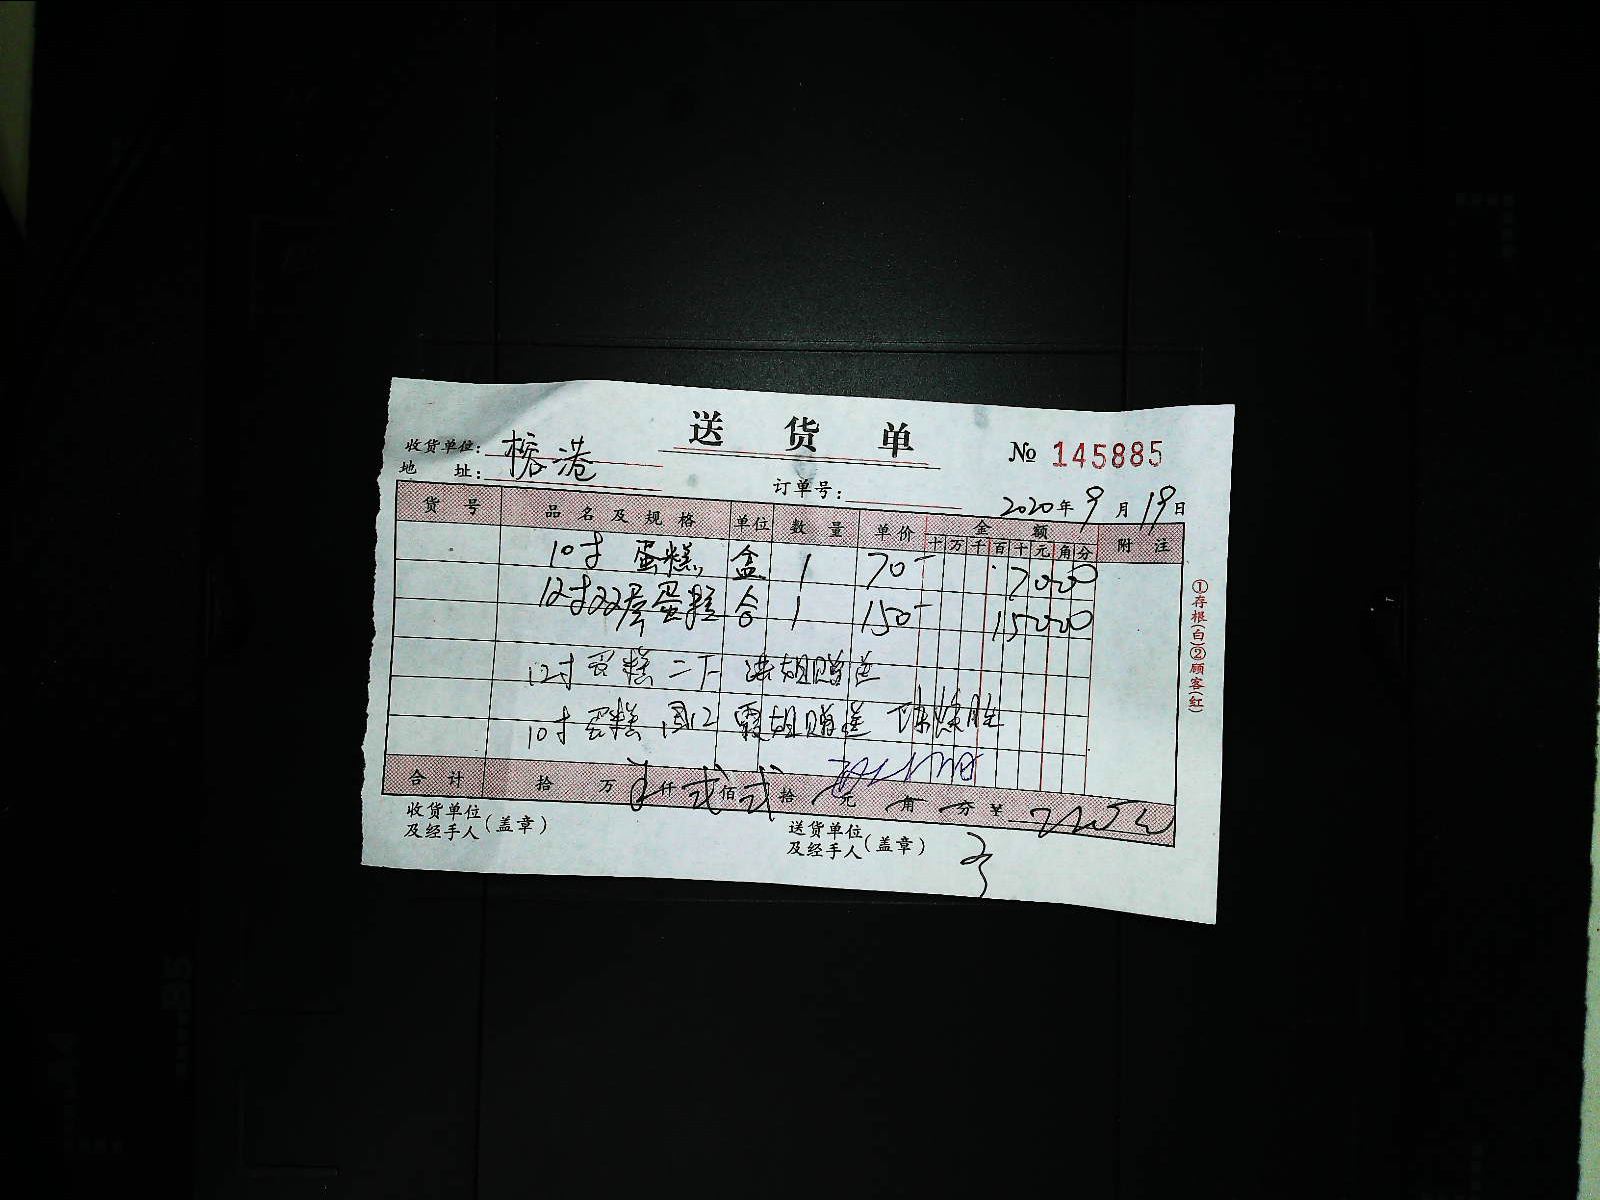 送货单
№ 145885
收货单位: 榕港
地址:
订单号:
2020年9月19日
货号 品名及规格 单位 数量 单价 金额 附注
十 万 千 百 十 元 角 分
10寸 蛋糕 盒 1 70- 7000
12寸双层蛋糕 合 1 150- 15000
12寸蛋糕 二厅 姐赠送
10寸蛋糕 周12 霞姐赠送 陈
合计 拾 万 仟 弍佰 弍拾 元 角 分 ¥ 220元
收货单位
及经手人(盖章)
送货单位
及经手人(盖章)
①存根(白)②顾客(红)